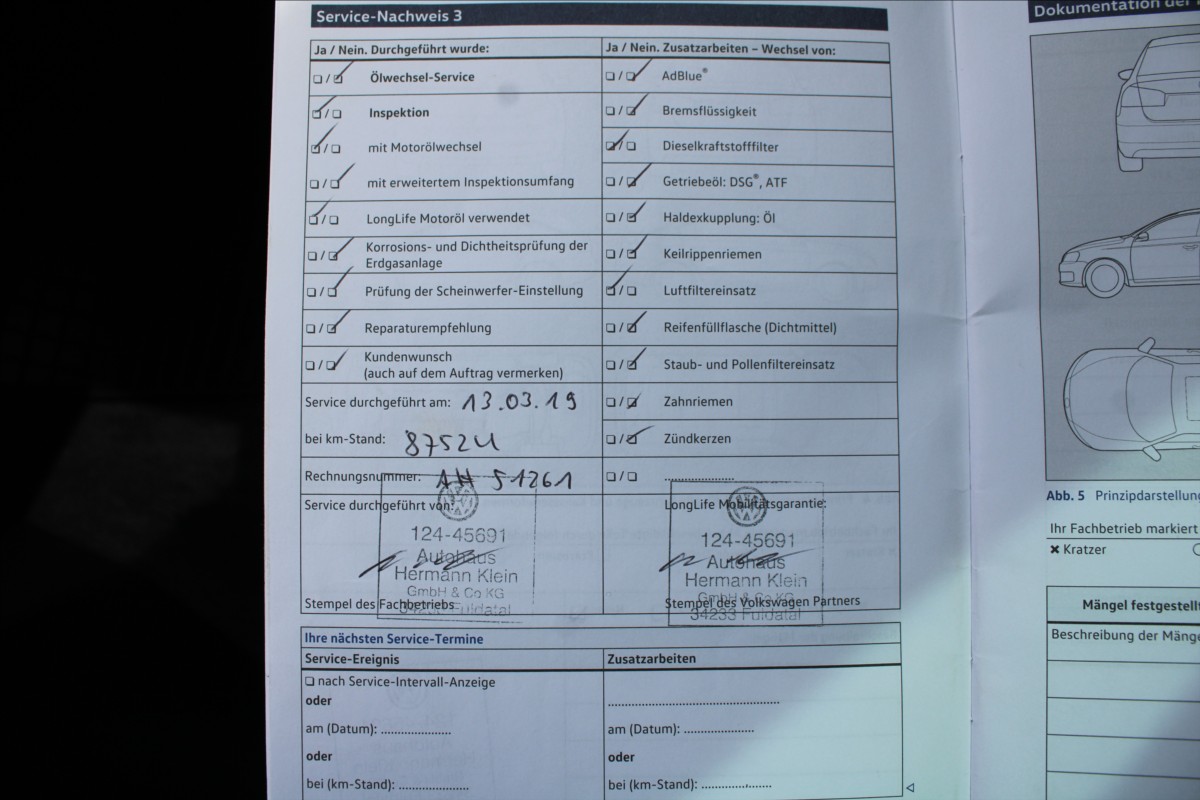 Service-Nachweis 3
Ja / Nein. Durchgeführt wurde:
Ölwechsel-Service
Inspektion
mit Motorölwechsel
mit erweitertem Inspektionsumfang
LongLife Motoröl verwendet
Korrosions- und Dichtheitsprüfung der
Erdgasanlage
Prüfung der Scheinwerfer-Einstellung
Reparaturempfehlung
Kundenwunsch
(auch auf dem Auftrag vermerken)
Service durchgeführt am: 13.03.19
bei km-Stand: 87524
Rechnungsnummer: AH 51261
Service durchgeführt von:
124-45691
Autohaus
Hermann Klein
GmbH & Co KG
34233 Fuldatal
Stempel des Fachbetriebs
Ja / Nein. Zusatzarbeiten – Wechsel von:
AdBlue®
Bremsflüssigkeit
Dieselkraftstofffilter
Getriebeöl: DSG®, ATF
Haldexkupplung: Öl
Keilrippenriemen
Luftfiltereinsatz
Reifenfüllflasche (Dichtmittel)
Staub- und Pollenfiltereinsatz
Zahnriemen
Zündkerzen
LongLife Mobilitätsgarantie:
124-45691
Autohaus
Hermann Klein
GmbH & Co KG
34233 Fuldatal
Stempel des Volkswagen Partners
Ihre nächsten Service-Termine
Service-Ereignis
nach Service-Intervall-Anzeige
oder
am (Datum):
oder
bei (km-Stand):
Zusatzarbeiten
am (Datum):
oder
bei (km-Stand):
Dokumentation der
Abb. 5 Prinzipdarstellung
Ihr Fachbetrieb markiert
Kratzer
Mängel festgestellt
Beschreibung der Mängel